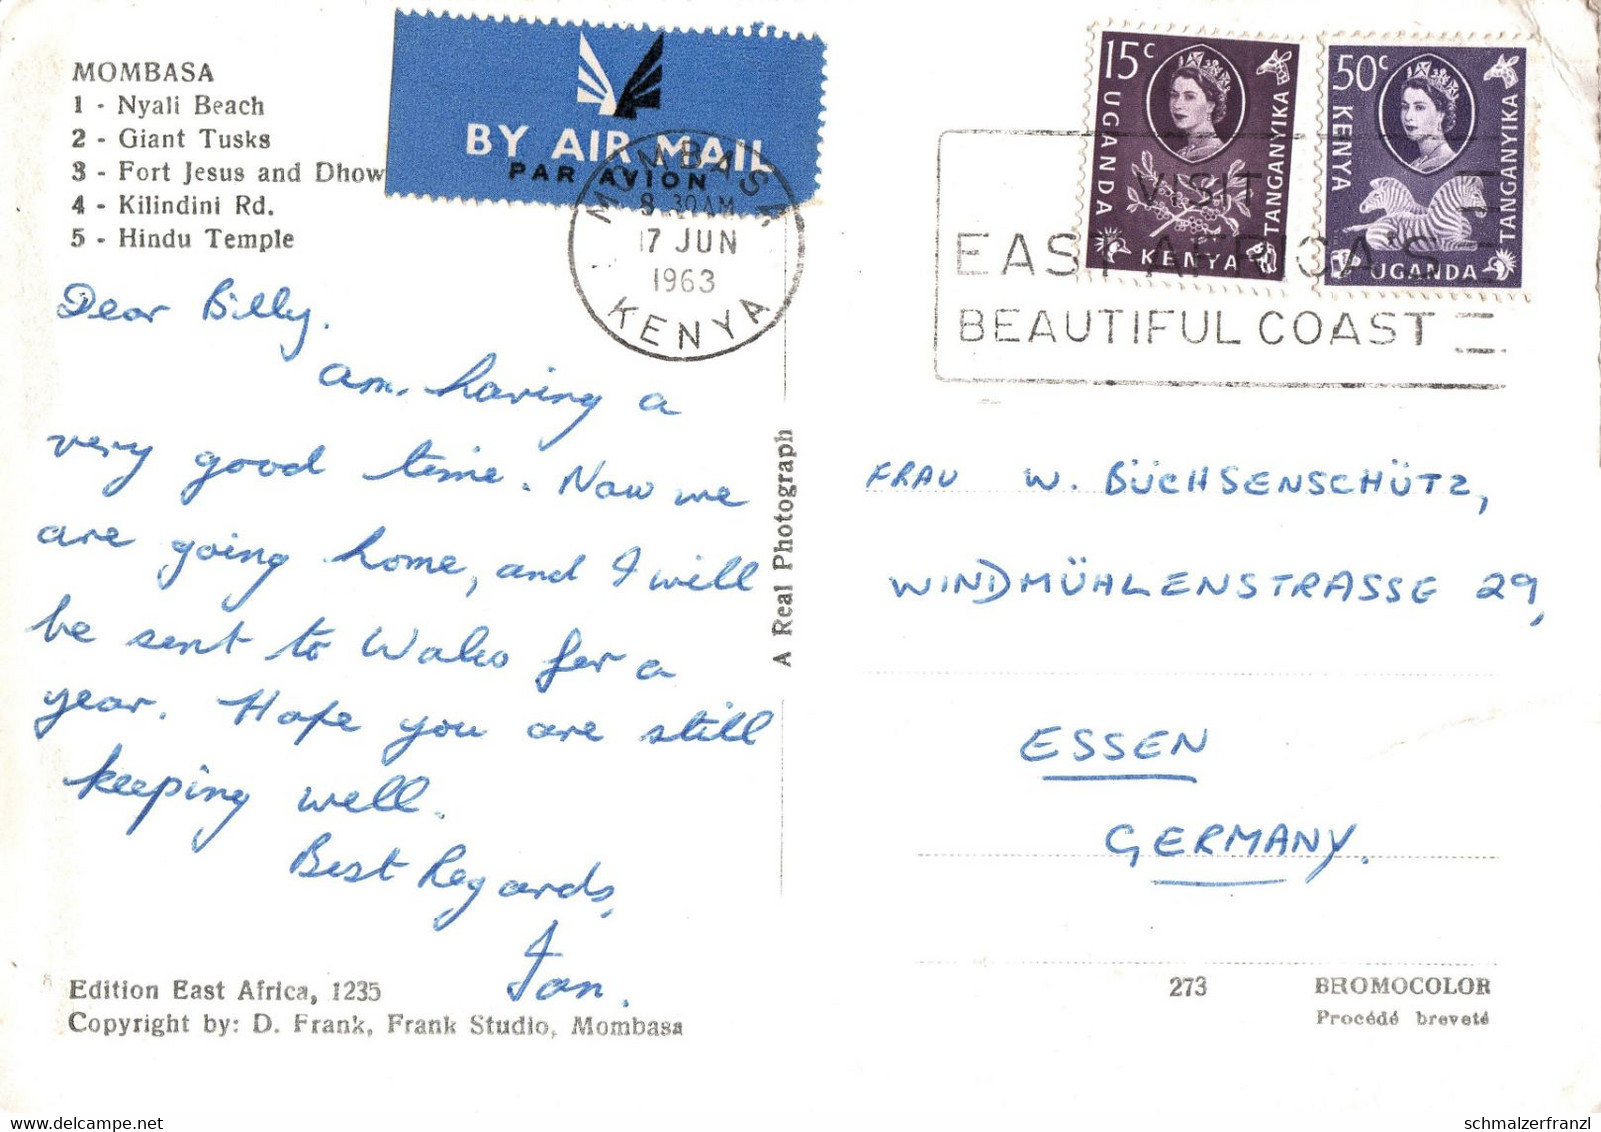 MOMBASA
1 - Nyali Beach
2 - Giant Tusks
3 - Fort Jesus and Dhow
4 - Kilindini Rd.
5 - Hindu Temple
BY AIR MAIL
PAR AVION
MOMBASA
8.30AM
17 JUN
1963
KENYA
15c
UGANDA
KENYA
TANGANYIKA
50c
KENYA
UGANDA
TANGANYIKA
VISIT
EAST AFRICA'S
BEAUTIFUL COAST
Dear Billy.
am having a
very good time. Now we
are going home, and I will
be sent to Wales for a
year. Hope you are still
keeping well.
Best Regards,
Ian.
A Real Photograph
FRAU W. BÜCHSENSCHÜTZ,
WINDMÜHLENSTRASSE 29,
ESSEN
GERMANY.
Edition East Africa, 1235
Copyright by: D. Frank, Frank Studio, Mombasa
273 BROMOCOLOR
Procédé breveté
schmalzerfranzl